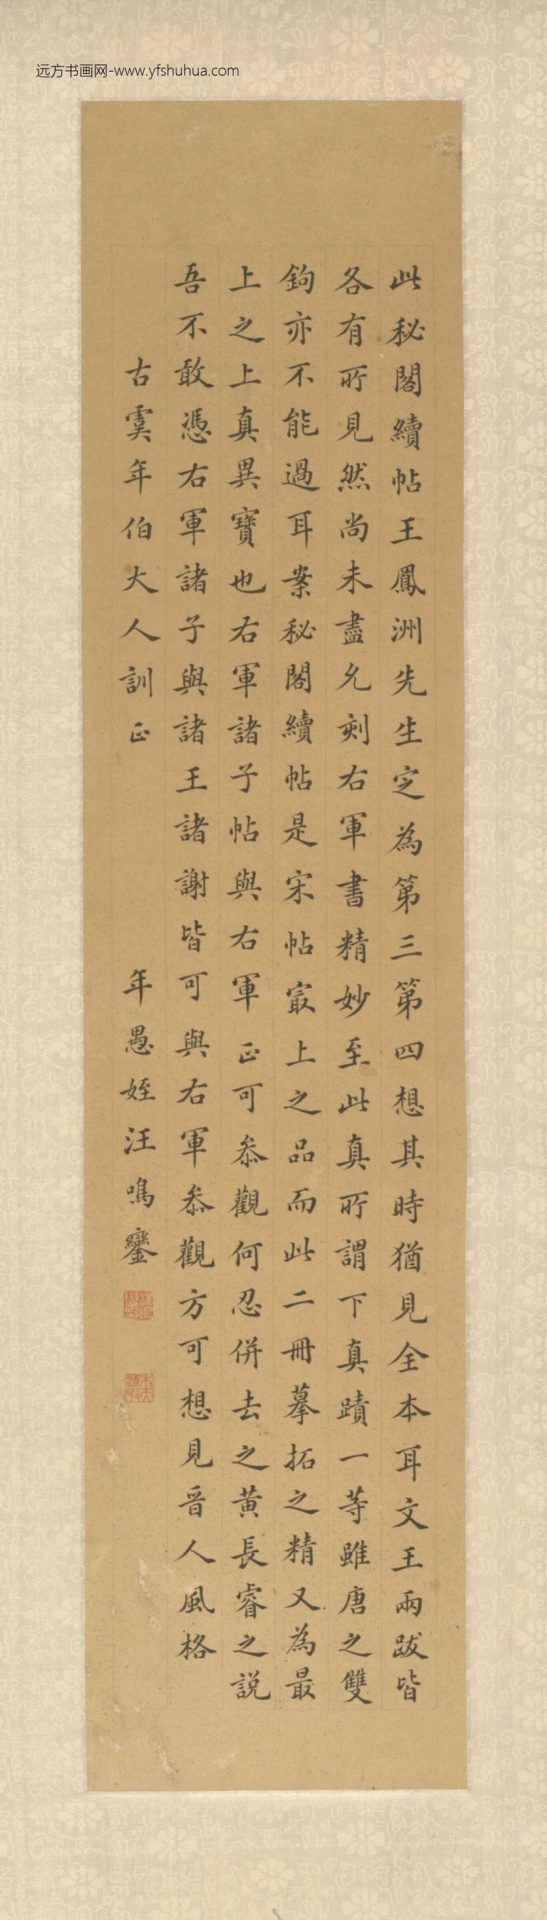 远方书画网-www.yfshuhua.com
此秘閣續帖王鳳洲先生定為第三第四想其時猶見全本耳文王兩跋皆
各有所見然尚未盡允刻右軍書精妙至此真所謂下真蹟一等雖唐之雙
鉤亦不能過耳案秘閣續帖是宋帖㝡上之品而此二冊摹拓之精又為最
上之上真異寶也右軍諸子帖與右軍正可叅觀何忍併去之黄長睿之說
吾不敢憑右軍諸子與諸王諸謝皆可與右軍叅觀方可想見晉人風格
古虞年伯大人訓正
年愚姪汪鳴鑾